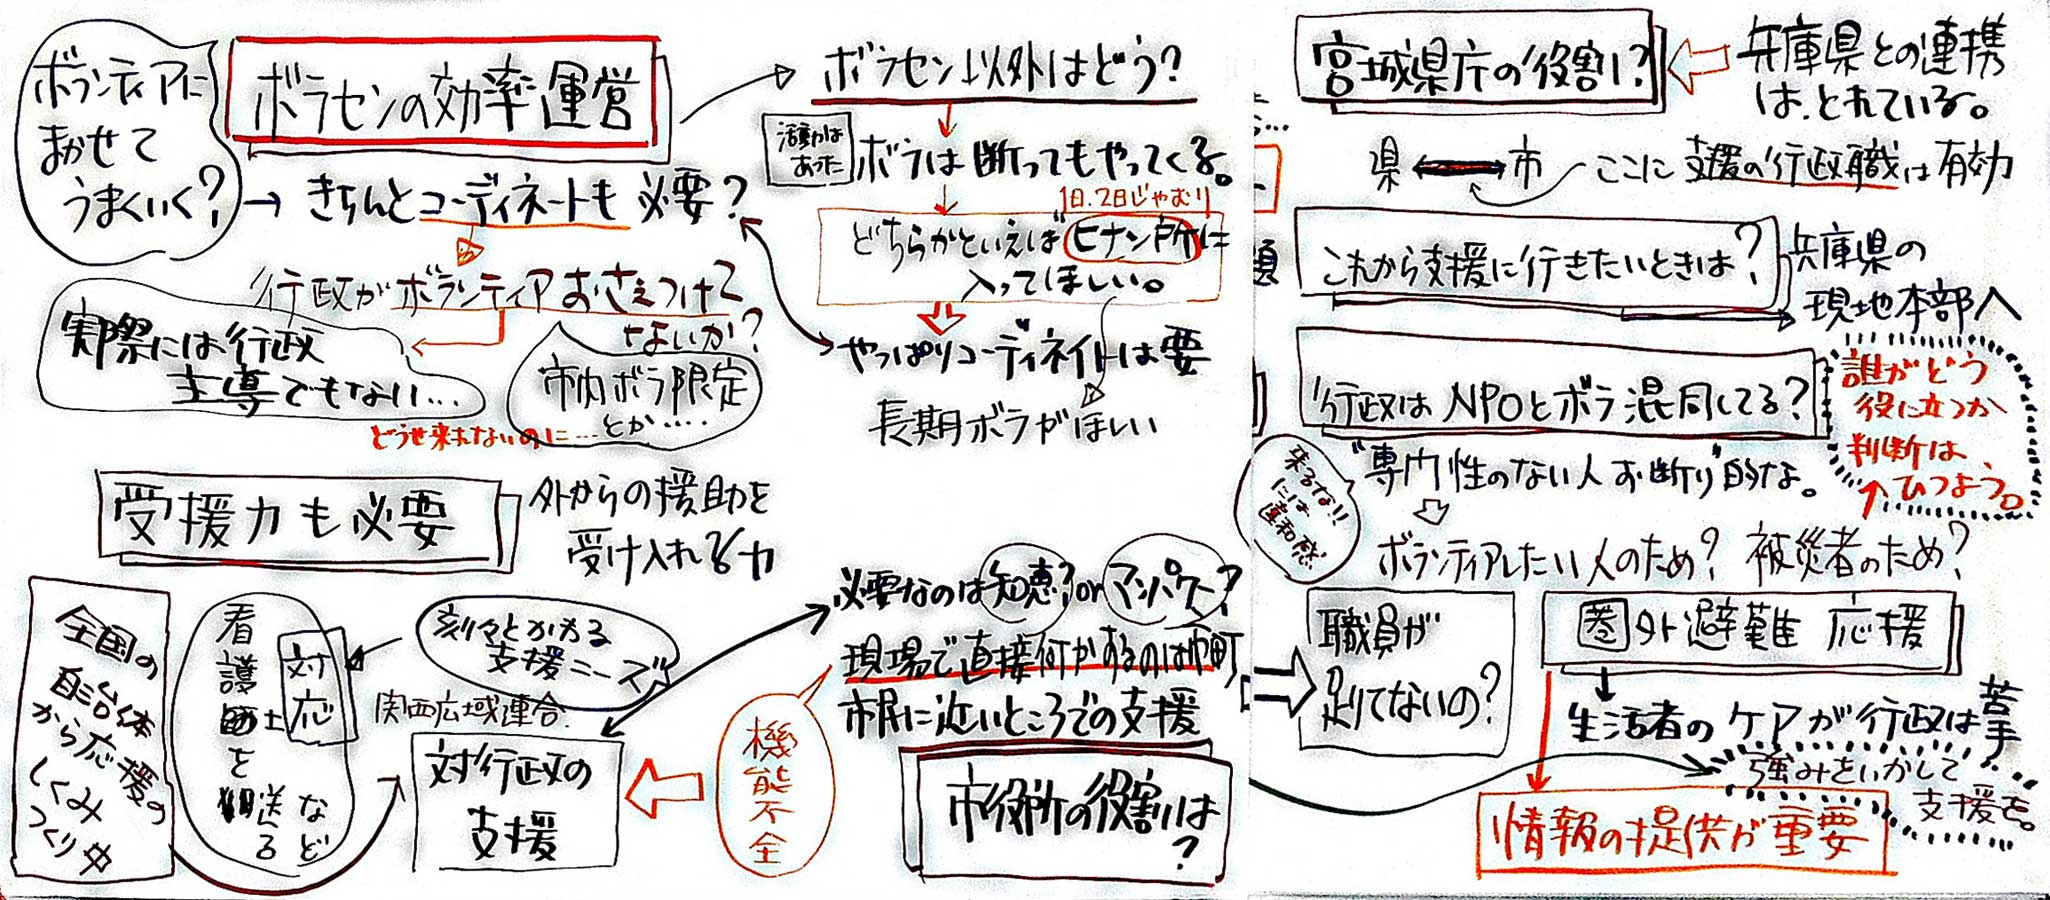 ボランティアに
まかせて
うまくいく?
ボラセンの効率運営
→ きちんとコーディネートも必要?
行政がボランティアおさえつけて
ないか?
実際には行政
主導でもない…
市内ボラ限定
とか….
どうせ来れないのに…
ボラセン以外はどう?
活動は
あった
ボラは断ってもやってくる。
1日.2日じゃむり
どちらかといえばヒナン所に
入ってほしい。
やっぱりコーディネイトは要
長期ボラがほしい
受援力も必要
外からの援助を
受け入れる力
全国の
自治体
から応援の
しくみ
つくりが
看護師を
送る
など
対応
刻々とかわる
支援ニーズ
関西広域連合.
対行政の
支援
機能不全
必要なのは知恵?orマンパワー?
現場で直接何かあるのは市町
市民に近いところでの支援
市役所の役割は
?
宮城県庁の役割?
兵庫県との連携
は.とれている。
県 ↔ 市 ここに支援の行政職は有効
これから支援に行きたいときは?
兵庫県の
現地本部へ
行政はNPOとボラ混同してる?
誰がどう
役に立つか
判断は
ひつよう。
来るな!!
には
違和感
"専門性のない人お断り"的な。
ボランティアしたい人のため? 被災者のため?
職員が
足りてないの?
圏外避難 応援
生活者のケアが行政は苦手
強みをいかして
支援を。
情報の提供が重要